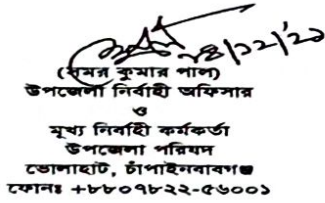 ২৪/১২/'২১
(সমর কুমার পাল)
উপজেলা নির্বাহী অফিসার
ও
মূখ্য নির্বাহী কর্মকর্তা
উপজেলা পরিষদ
ভোলাহাট, চাঁপাইনবাবগঞ্জ
ফোনঃ +৮৮০৭৮২২-৫৬০০১